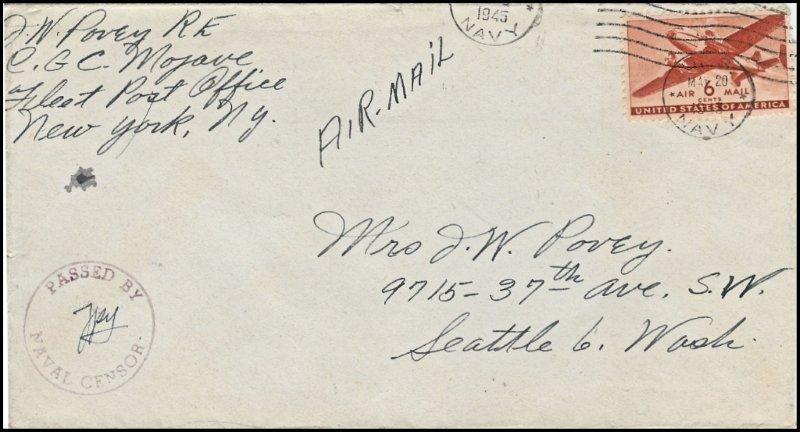 J.W. Povey RE
C.G.C. Mojave
Fleet Post Office
New York, Ny.
AIR-MAIL
1945
NAVY
6
AIR MAIL
CENTS
UNITED STATES OF AMERICA
20
NAVY
Mrs J.W. Povey.
9715-37th ave. S.W.
Seattle 6. Wash.
PASSED BY
NAVAL CENSOR.